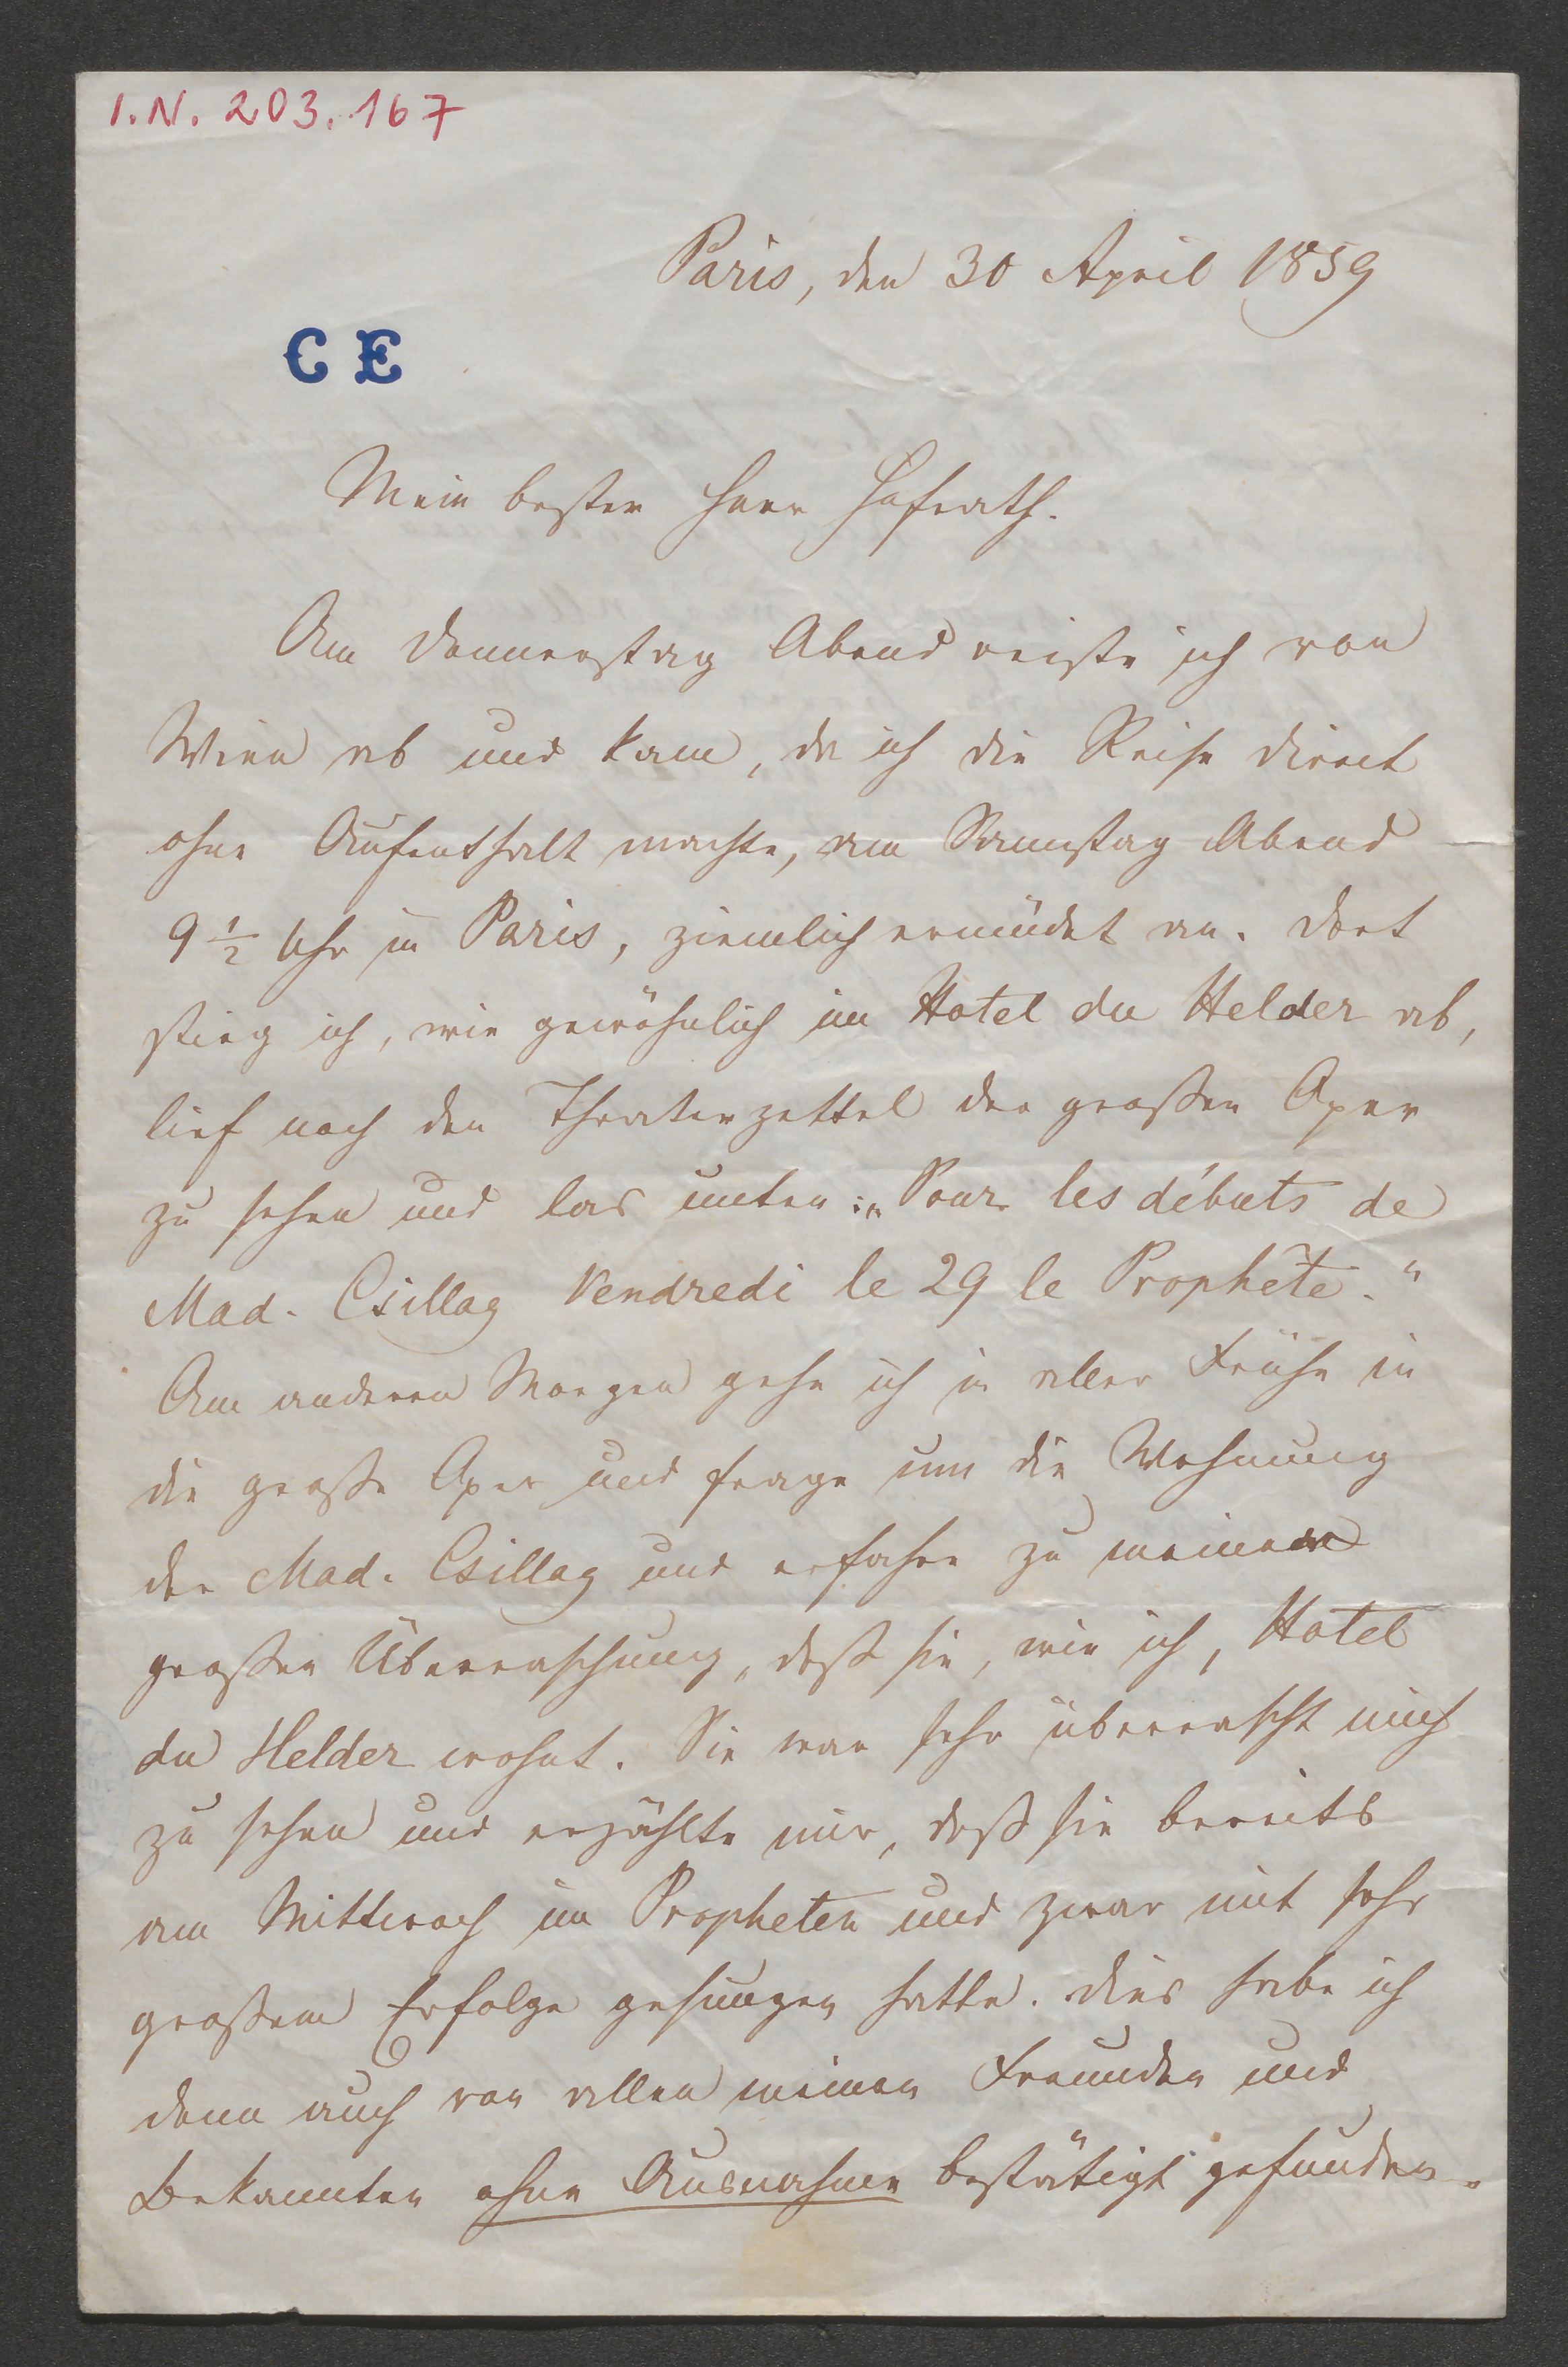 I.N. 203.167
Paris, den 30 April 1859
C E
Mein bester Herr Hofrath.
Am Donnerstag Abend reiste ich von
Wien ab und kam, da ich die Reise direct
ohne Aufenthalt machte, am Samstag Abend
9 1/2 Uhr in Paris, ziemlich ermüdet an. Dort
stieg ich, wie gewöhnlich im Hotel du Helder ab,
lief nach den Theaterzettel der großen Oper
zu sehen und las unten: „Pour les débuts de
Mad. Csillag Vendredi le 29 le Prophète."
Am anderen Morgen gehe ich in aller Frühe in
die große Oper und frage um die Wohnung
der Mad. Csillag und erfahre zu meiner
großen Überraschung, daß sie, wie ich, Hotel
du Helder wohnt. Sie war sehr überrascht mich
zu sehen und erzählte mir, daß sie bereits
am Mittwoch im Propheten und zwar mit sehr
großem Erfolge gesungen hatte. Dies habe ich
denn auch von allen meinen Freunden und
Bekannten ohne Ausnahme bestätigt gefunden.